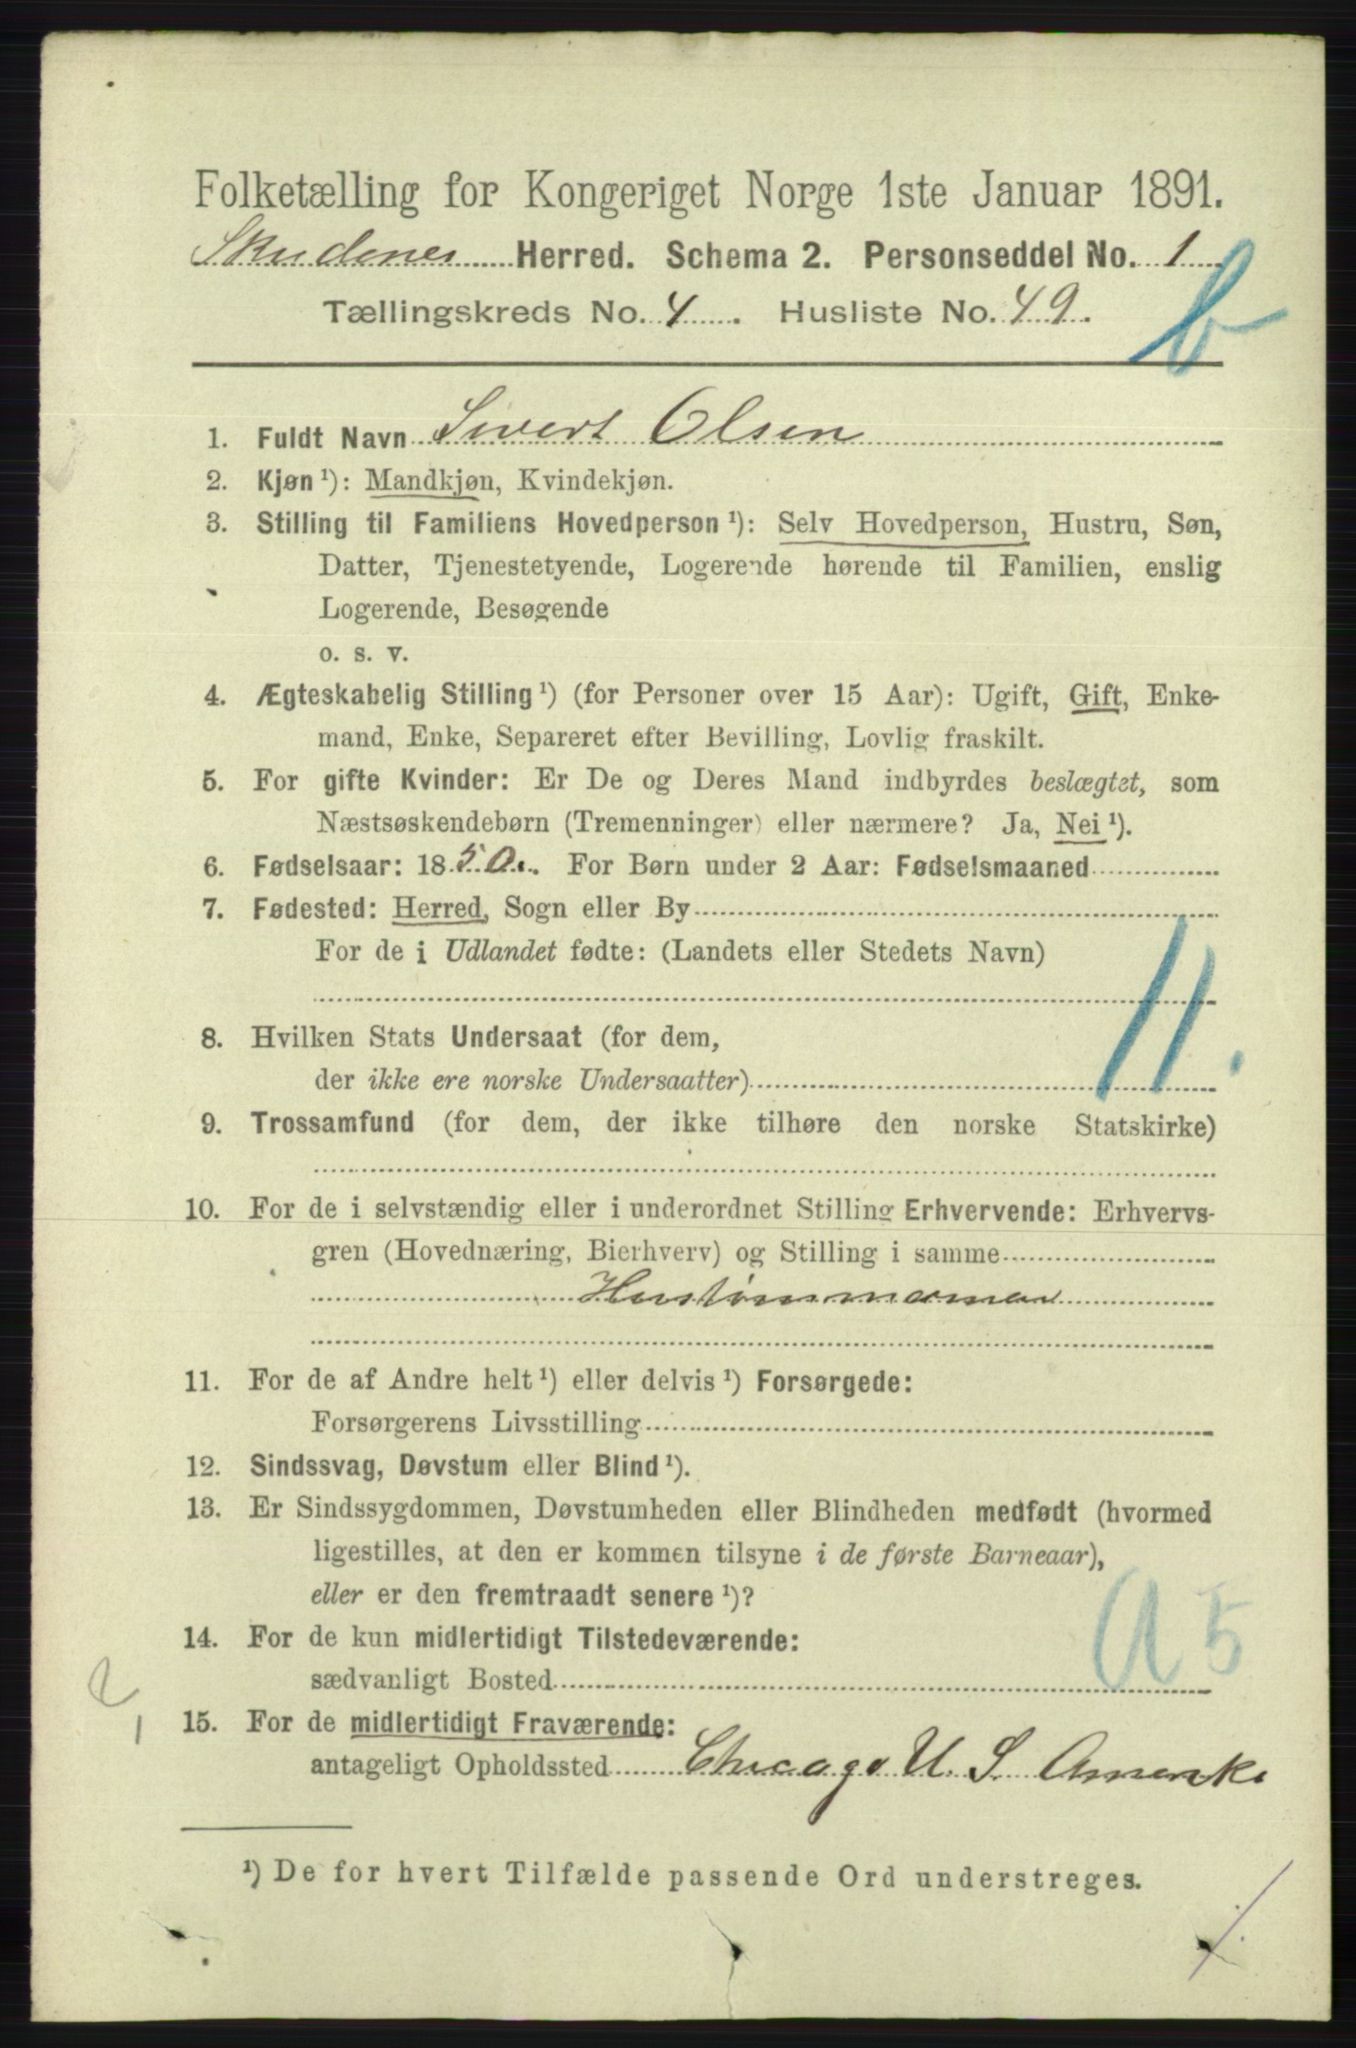 Folketælling for Kongeriget Norge 1ste Januar 1891.
Skudenes Herred. Schema 2. Personseddel No. 1
Tællingskreds No. 4. Husliste No. 49.
b
1. Fuldt Navn Sivert Olsen
2. Kjøn ¹): Mandkjøn, Kvindekjøn.
3. Stilling til Familiens Hovedperson ¹): Selv Hovedperson, Hustru, Søn,
Datter, Tjenestetyende, Logerende hørende til Familien, enslig
Logerende, Besøgende
o. s. v.
4. Ægteskabelig Stilling ¹) (for Personer over 15 Aar): Ugift, Gift, Enke-
mand, Enke, Separeret efter Bevilling, Lovlig fraskilt.
5. For gifte Kvinder: Er De og Deres Mand indbyrdes beslægtet, som
Næstsøskendebørn (Tremenninger) eller nærmere? Ja, Nei ¹).
6. Fødselsaar: 1850. For Børn under 2 Aar: Fødselsmaaned
7. Fødested: Herred, Sogn eller By
For de i Udlandet fødte: (Landets eller Stedets Navn)
11.
8. Hvilken Stats Undersaat (for dem,
der ikke ere norske Undersaatter)
9. Trossamfund (for dem, der ikke tilhøre den norske Statskirke)
10. For de i selvstændig eller i underordnet Stilling Erhvervende: Erhvervs-
gren (Hovednæring, Bierhverv) og Stilling i samme
Hustømmerman
11. For de af Andre helt ¹) eller delvis ¹) Forsørgede:
Forsørgerens Livsstilling
12. Sindssvag, Døvstum eller Blind ¹).
13. Er Sindssygdommen, Døvstumheden eller Blindheden medfødt (hvormed
ligestilles, at den er kommen tilsyne i de første Barneaar),
eller er den fremtraadt senere ¹)?
14. For de kun midlertidigt Tilstedeværende:
sædvanligt Bosted
a 5
15. For de midlertidigt Fraværende:
antageligt Opholdssted Chicago U. S. Amerika
¹) De for hvert Tilfælde passende Ord understreges.